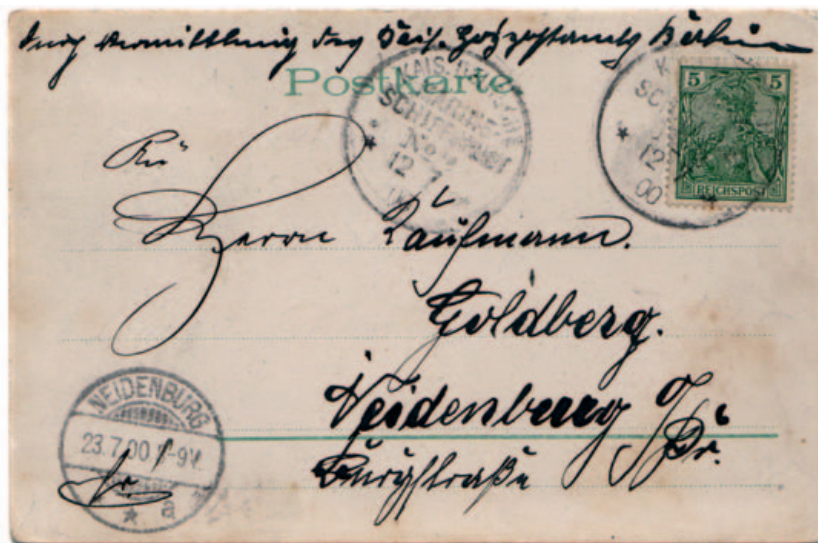 durch Vermittlung des Kais. Hofpostamts Berlin
Postkarte
KAIS. DEUTSCHE
MARINE-
SCHIFFSPOST
No
12 7
00
5 5
REICHSPOST
12
00
An
Herrn Kaufmann.
Goldberg.
Neidenburg O/Pr.
Burgstraße
NEIDENBURG
23.7.00 -9V.
a